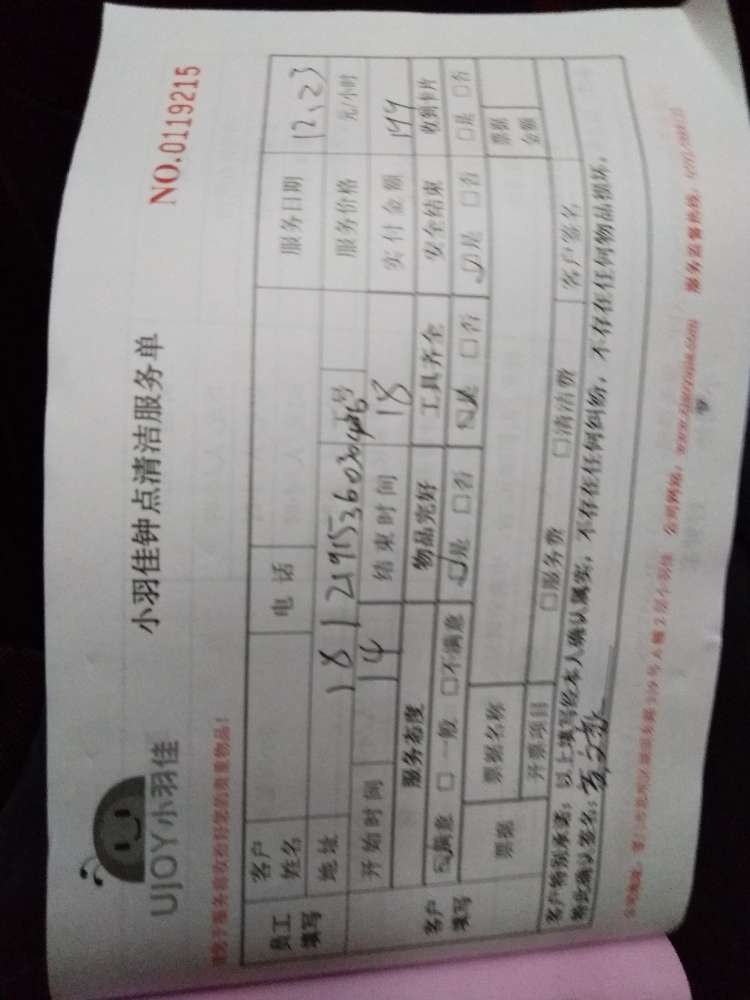 UJOY小羽佳
小羽佳钟点清洁服务单
NO.0119215
员工填写
客户姓名
电话
服务日期
12、23
地址
18121915360
工号
服务价格
元/小时
开始时间
14
结束时间
18
实付金额
144
客户填写
服务态度
物品完好
工具齐全
安全结束
收到卡片
☑满意 □一般 □不满意
☑是 □否
☑是 □否
☑是 □否
□是 □否
票据
票据名称
票据金额
开票项目
□服务费
□清洁费
客户签名
客户特别承诺：以上填写经本人确认属实，不存在任何纠纷，不存在任何物品损坏，
特此确认签名：
公司网站：
服务监督热线：